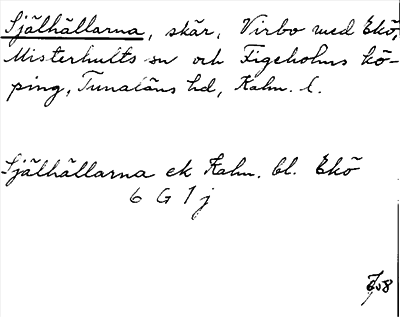 Själhällarna, skär, Virbo med Ekö,
Misterhults sn och Figeholms kö-
ping, Tunaläns hd, Kalm. l.
Själhällarna ek Kalm. bl. Ekö
6 G 1 j